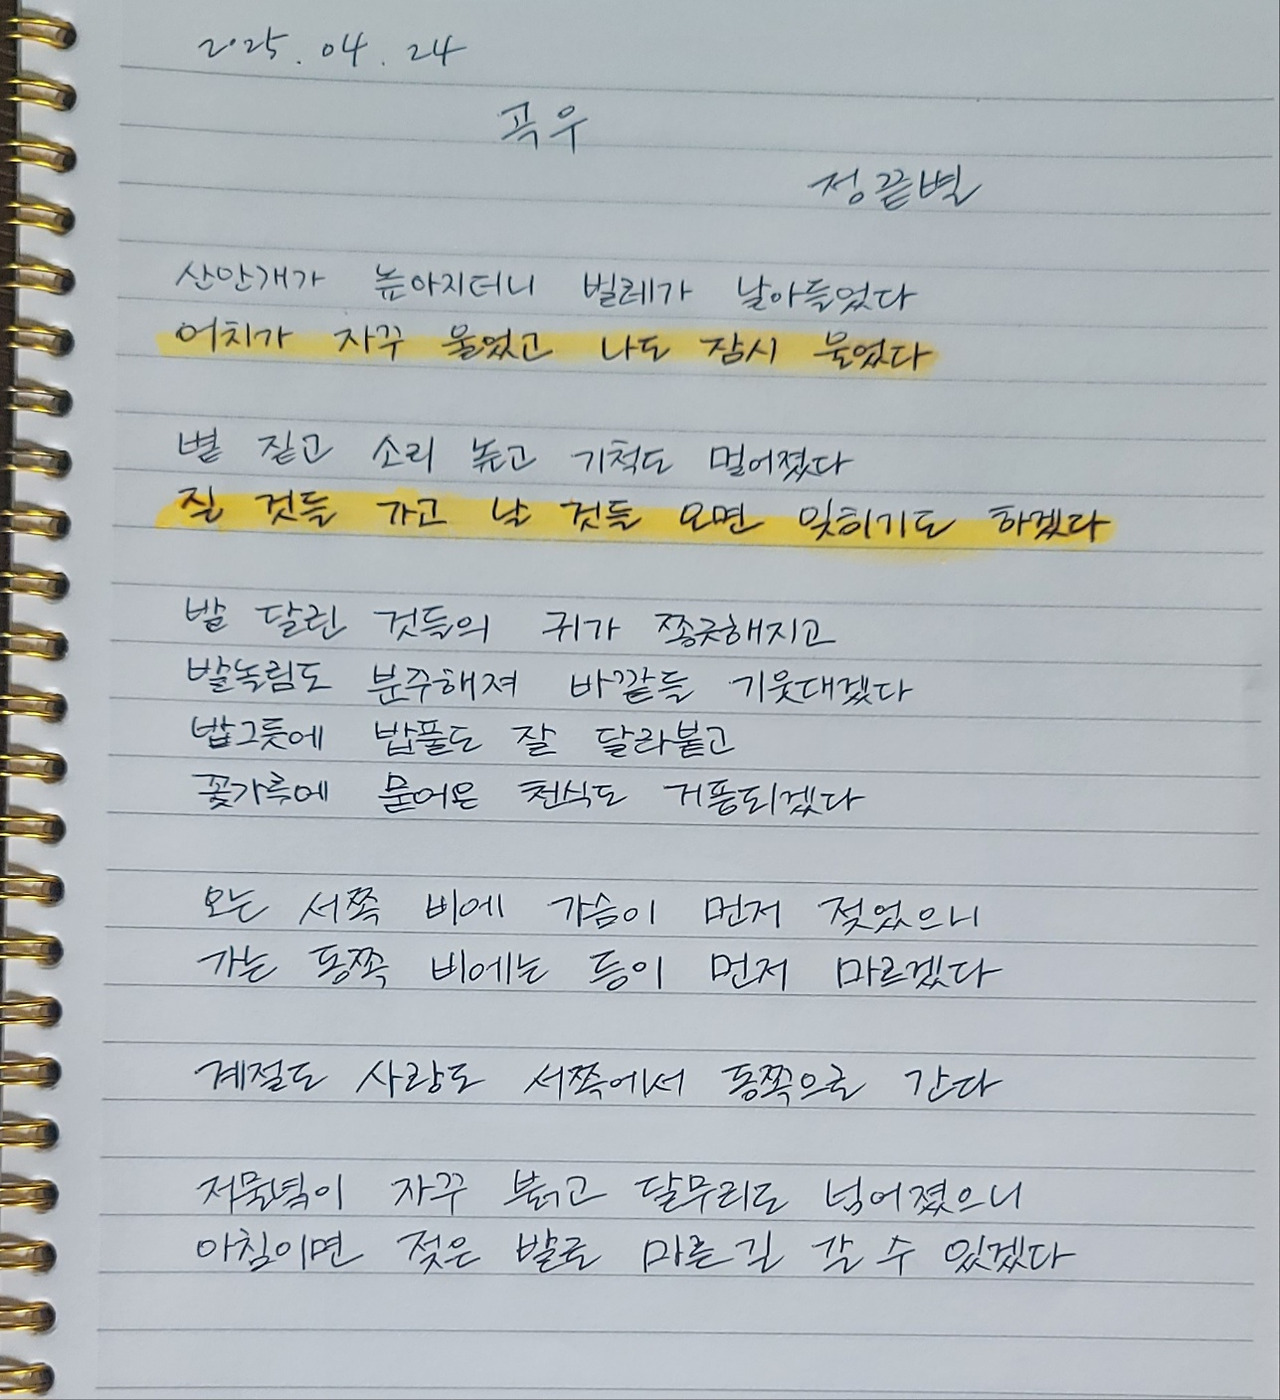 2025. 04. 24
곡우
정끝별
산안개가 높아지더니 벌레가 날아들었다
어치가 자꾸 울었고 나도 잠시 울었다
볕 짙고 소리 높고 기척도 멀어졌다
질 것들 가고 날 것들 오면 잊히기도 하겠다
발 달린 것들의 귀가 쫑긋해지고
발놀림도 분주해져 바깥들 기웃대겠다
밥그릇에 밥풀도 잘 달라붙고
꽃가루에 묻어온 천식도 거풍되겠다
오는 서쪽 비에 가슴이 먼저 젖었으니
가는 동쪽 비에는 등이 먼저 마르겠다
계절도 사랑도 서쪽에서 동쪽으로 간다
저물녘이 자꾸 붉고 달무리도 넓어졌으니
아침이면 젖은 발로 마른 길 갈 수 있겠다